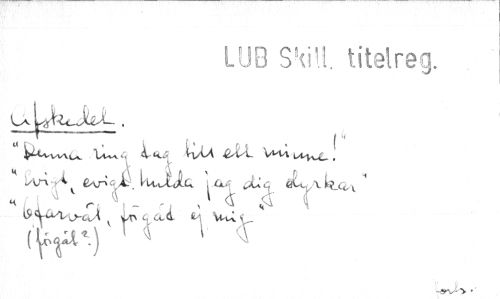 LUB Skill. titelreg.
Afskedet.
"Denna ring tag till ett minne!"
"Evigt, evigt hulda jag dig dyrkar"
"Farväl, förgät ej mig"
(förgät?)
forts.